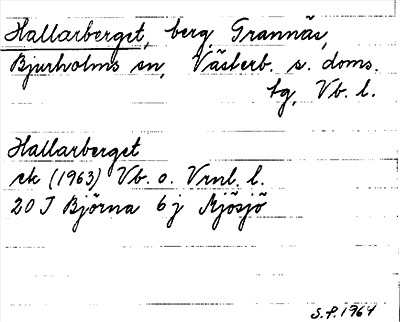 Hallarberget, berg Grannäs,
Bjurholms sn, Västerb. s. doms.
tg, Vb. l.
Hallarberget
ek (1963) Vb. o. Vrnl. l.
20 J Björna 6 j Mjösjö
S.P. 1964